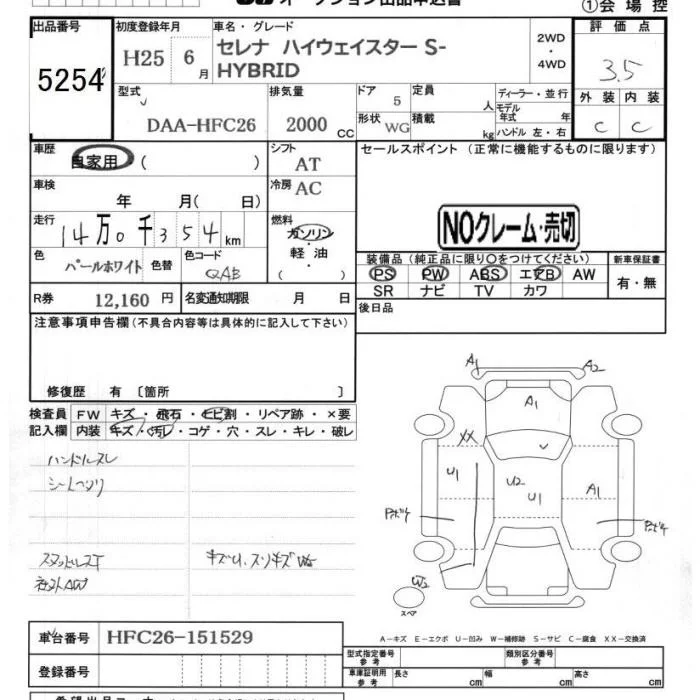 オークション出品申込書
①会場控
出品番号
初度登録年月
車名・グレード
評価点
5254
H25 6月
セレナ ハイウェイスター S-
HYBRID
2WD
・
4WD
3.5
型式
排気量
ドア
定員
ディーラー・並行
外装 内装
DAA-HFC26
2000 CC
5
人
モデル年式 年
C C
形状 WG
積載 kg
ハンドル 左・右
車歴
自家用 ( )
シフト
AT
セールスポイント (正常に機能するものに限ります)
車検
年 月( 日)
冷房 AC
走行
14万0千354km
燃料
ガソリン
・
軽油
・
( )
NOクレーム・売切
色
パールホワイト
色替
色コード
QAB
装備品 (純正品に限り○をつけてください)
新車保証書
PS PW ABS エアB AW
SR ナビ TV カワ
有・無
R券
12,160 円
名変通知期限 月 日
後日品
注意事項申告欄 (不具合内容等は具体的に記入して下さい)
修復歴 有 〔箇所 〕
検査員 FW キズ・飛石・ヒビ割・リペア跡・×要
記入欄 内装 キズ・汚レ・コゲ・穴・スレ・キレ・破レ
ハンドルスレ
A1 A2
A1
XX
U1
U2
U1
A1
W2
スペア
A－キズ E－エクボ U－凹み W－補修跡 S－サビ C－腐食 XX－交換済
車台番号
HFC26-151529
型式指定番号
参考
類別区分番号
参考
登録番号
車庫証明用
参考
長さ cm
幅 cm
高さ cm